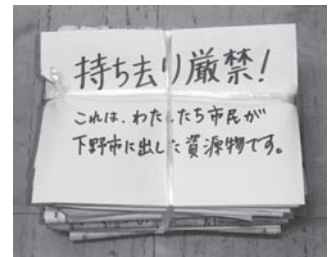 持ち去り厳禁!
これは、わたしたち市民が
下野市に出した資源物です。